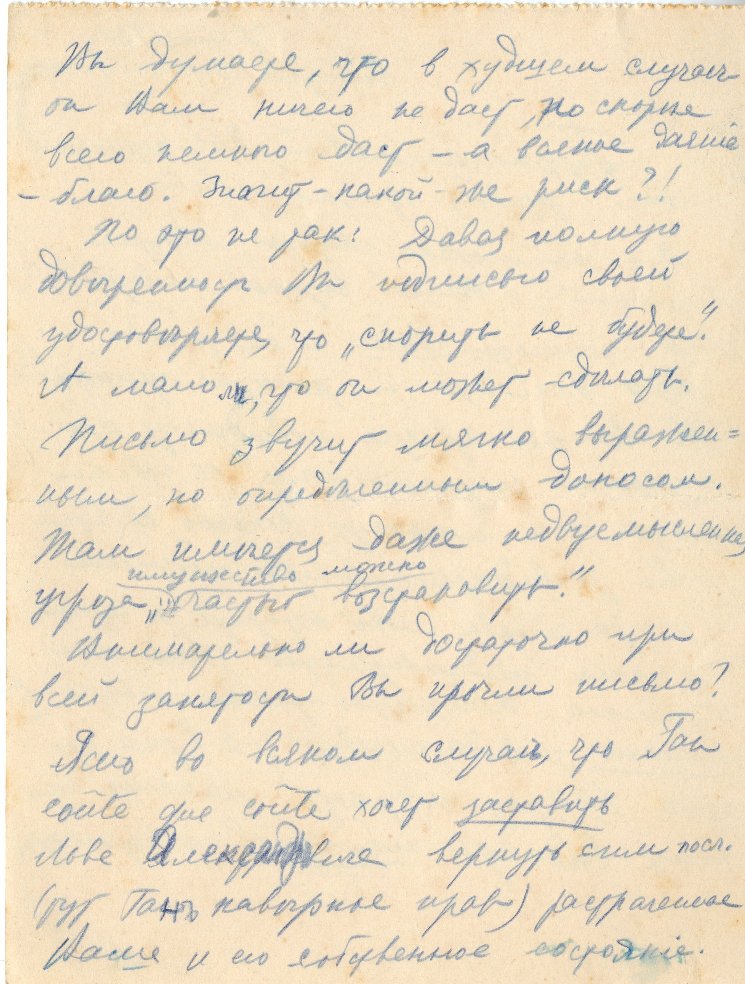 Вы думаете, что в худшем случаѣ
он Вам ничего не даст, но скорѣе
всего немного даст – а всякое даянiе
– благо. Значит – какой-же риск?!
Но это не так: Давая полную
довѣренность Вы подписью своей
удостовѣряете, что „спорить не будете".
А мало ли, что он может сдѣлать.
Письмо звучит мягко выражен=
ным, но опредѣленным доносом.
Там имѣется даже недвусмысленная
имущество можно
угроза „ частью возстановить."
Внимательно ли достаточно при
всей занятости Вы прочли письмо?
Ясно во всяком случаѣ, что Ган
coûte que coûte хочет заставить
Александровича вернуть
(тут Ганъ навѣрное прав) растраченное
Ваше и его собственное состоянiе.